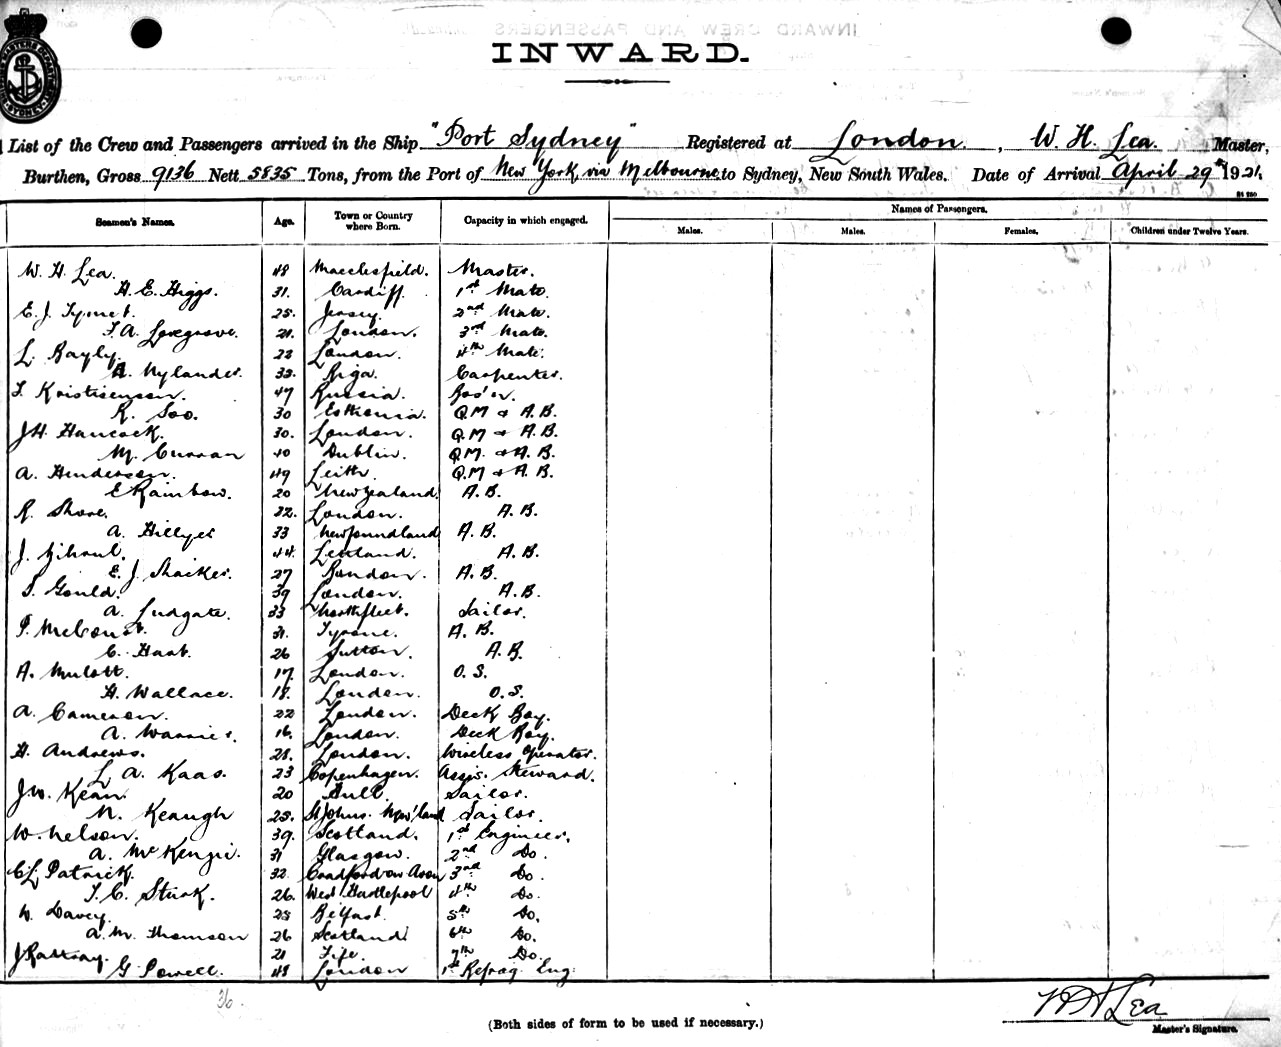 INWARD.
List of the Crew and Passengers arrived in the Ship "Port Sydney" Registered at London, W. H. Lea. Master,
Burthen, Gross 9136 Nett 5835 Tons, from the Port of New York, via Melbourne to Sydney, New South Wales. Date of Arrival April 29th 1921.
Seamen's Names. Age. Town or Country where Born. Capacity in which engaged. Names of Passengers.
Males. Males. Females. Children under Twelve Years.
W. H. Lea. 48 Macclesfield. Master.
H. E. Higgs. 31. Cardiff. 1st Mate.
E. J. 25. Jersey. 2nd Mate.
F. A. Lovegrove. 21. London. 3rd Mate.
L. Bayly. 22 London. 4th Mate.
A. Nylander. 33. Riga. Carpenter.
47 Russia. Bos'n.
K. Soo. 30 Esthonia. Q.M & A.B.
J H. Hancock. 30. London. Q.M & A.B.
M. Curran 40 Dublin. Q.M. & A.B.
A. Henderson. 49 Leith. Q.M & A.B.
E Rainbow. 20 New Zealand. A.B.
R. Shore. 22. London. A.B.
A. Hillyer 33 Newfoundland A.B.
J. 44. A.B.
E. J. 27 London. A.B.
S. Gould. 39 London. A.B.
A. Ludgate. 33 Northfleet. Sailor.
P. 31. Tyrone. A.B.
C. 26 Sutton. A.B.
A. 17. London. O.S.
H. Wallace. 18. London. O.S.
A. Cameron. 22 London. Deck Boy.
A. Warrier. 16. London. Deck Boy.
H. Andrews. 21. London. Wireless Operator.
L. A. Kaas. 23 Copenhagen. Assis. Steward.
J W. Kean. 20 Hull. Sailor.
N. Keaugh 25. St Johns. New'land Sailor.
W. Nelson. 39. Scotland. 1st Engineer.
A. McKenzie. 31 Glasgow. 2nd Do.
C L Patrick. 32. Bradford on Avon 3rd Do.
T. C. Sturk. 26. West Hartlepool 4th Do.
W. Davey. 25 Belfast. 5th Do.
A. M. Thomson 26 Scotland 6th Do.
J Rattray. 21 Fife. 7th Do.
G. Powell. 48 London 1st Refrag. Eng.
36.
(Both sides of form to be used if necessary.)
W H Lea
Master's Signature.